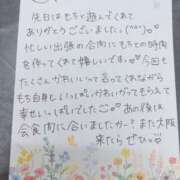 先日はもちと遊んでくれて
ありがとうございました。(^^)。♡
忙しい出張の合間にもちとの時間
を作ってくれて嬉しいです。♡今回も
たくさんかわいいって言ってくれながら
もち自身しいっぱいかわいがってもらえて
幸せいっぱいでした☺♡あの後は
会食間に合いましたかー？また大阪
来たらぜひ。♡